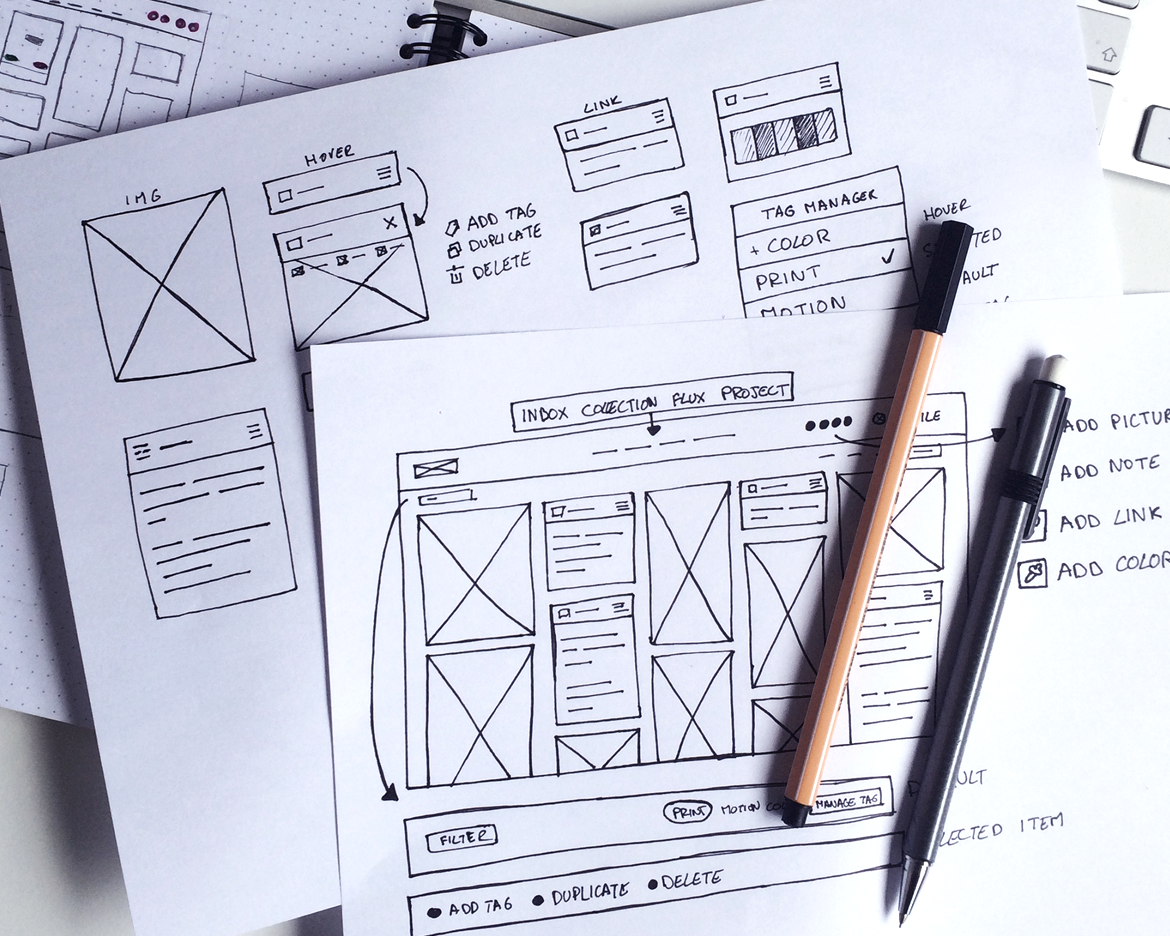 IMG
HOVER
ADD TAG
DUPLICATE
DELETE
LINK
TAG MANAGER
+ COLOR
PRINT
MOTION
HOVER
INBOX COLLECTION FLUX PROJECT
ADD PICTUR
ADD NOTE
ADD LINK
ADD COLOR
FILTER
PRINT MOTION MANAGE TAG
ITEM
ADD TAG DUPLICATE DELETE